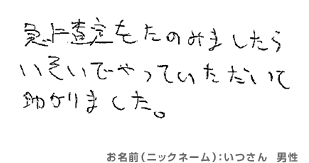 急に査定をたのみましたら
いそいでやっていただいて
助かりました。
お名前(ニックネーム):いつさん 男性